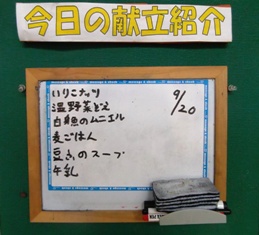 今日の献立紹介
9/20
いりこナッツ
温野菜どえ
白魚のムニエル
麦ごはん
豆乳のスープ
牛乳